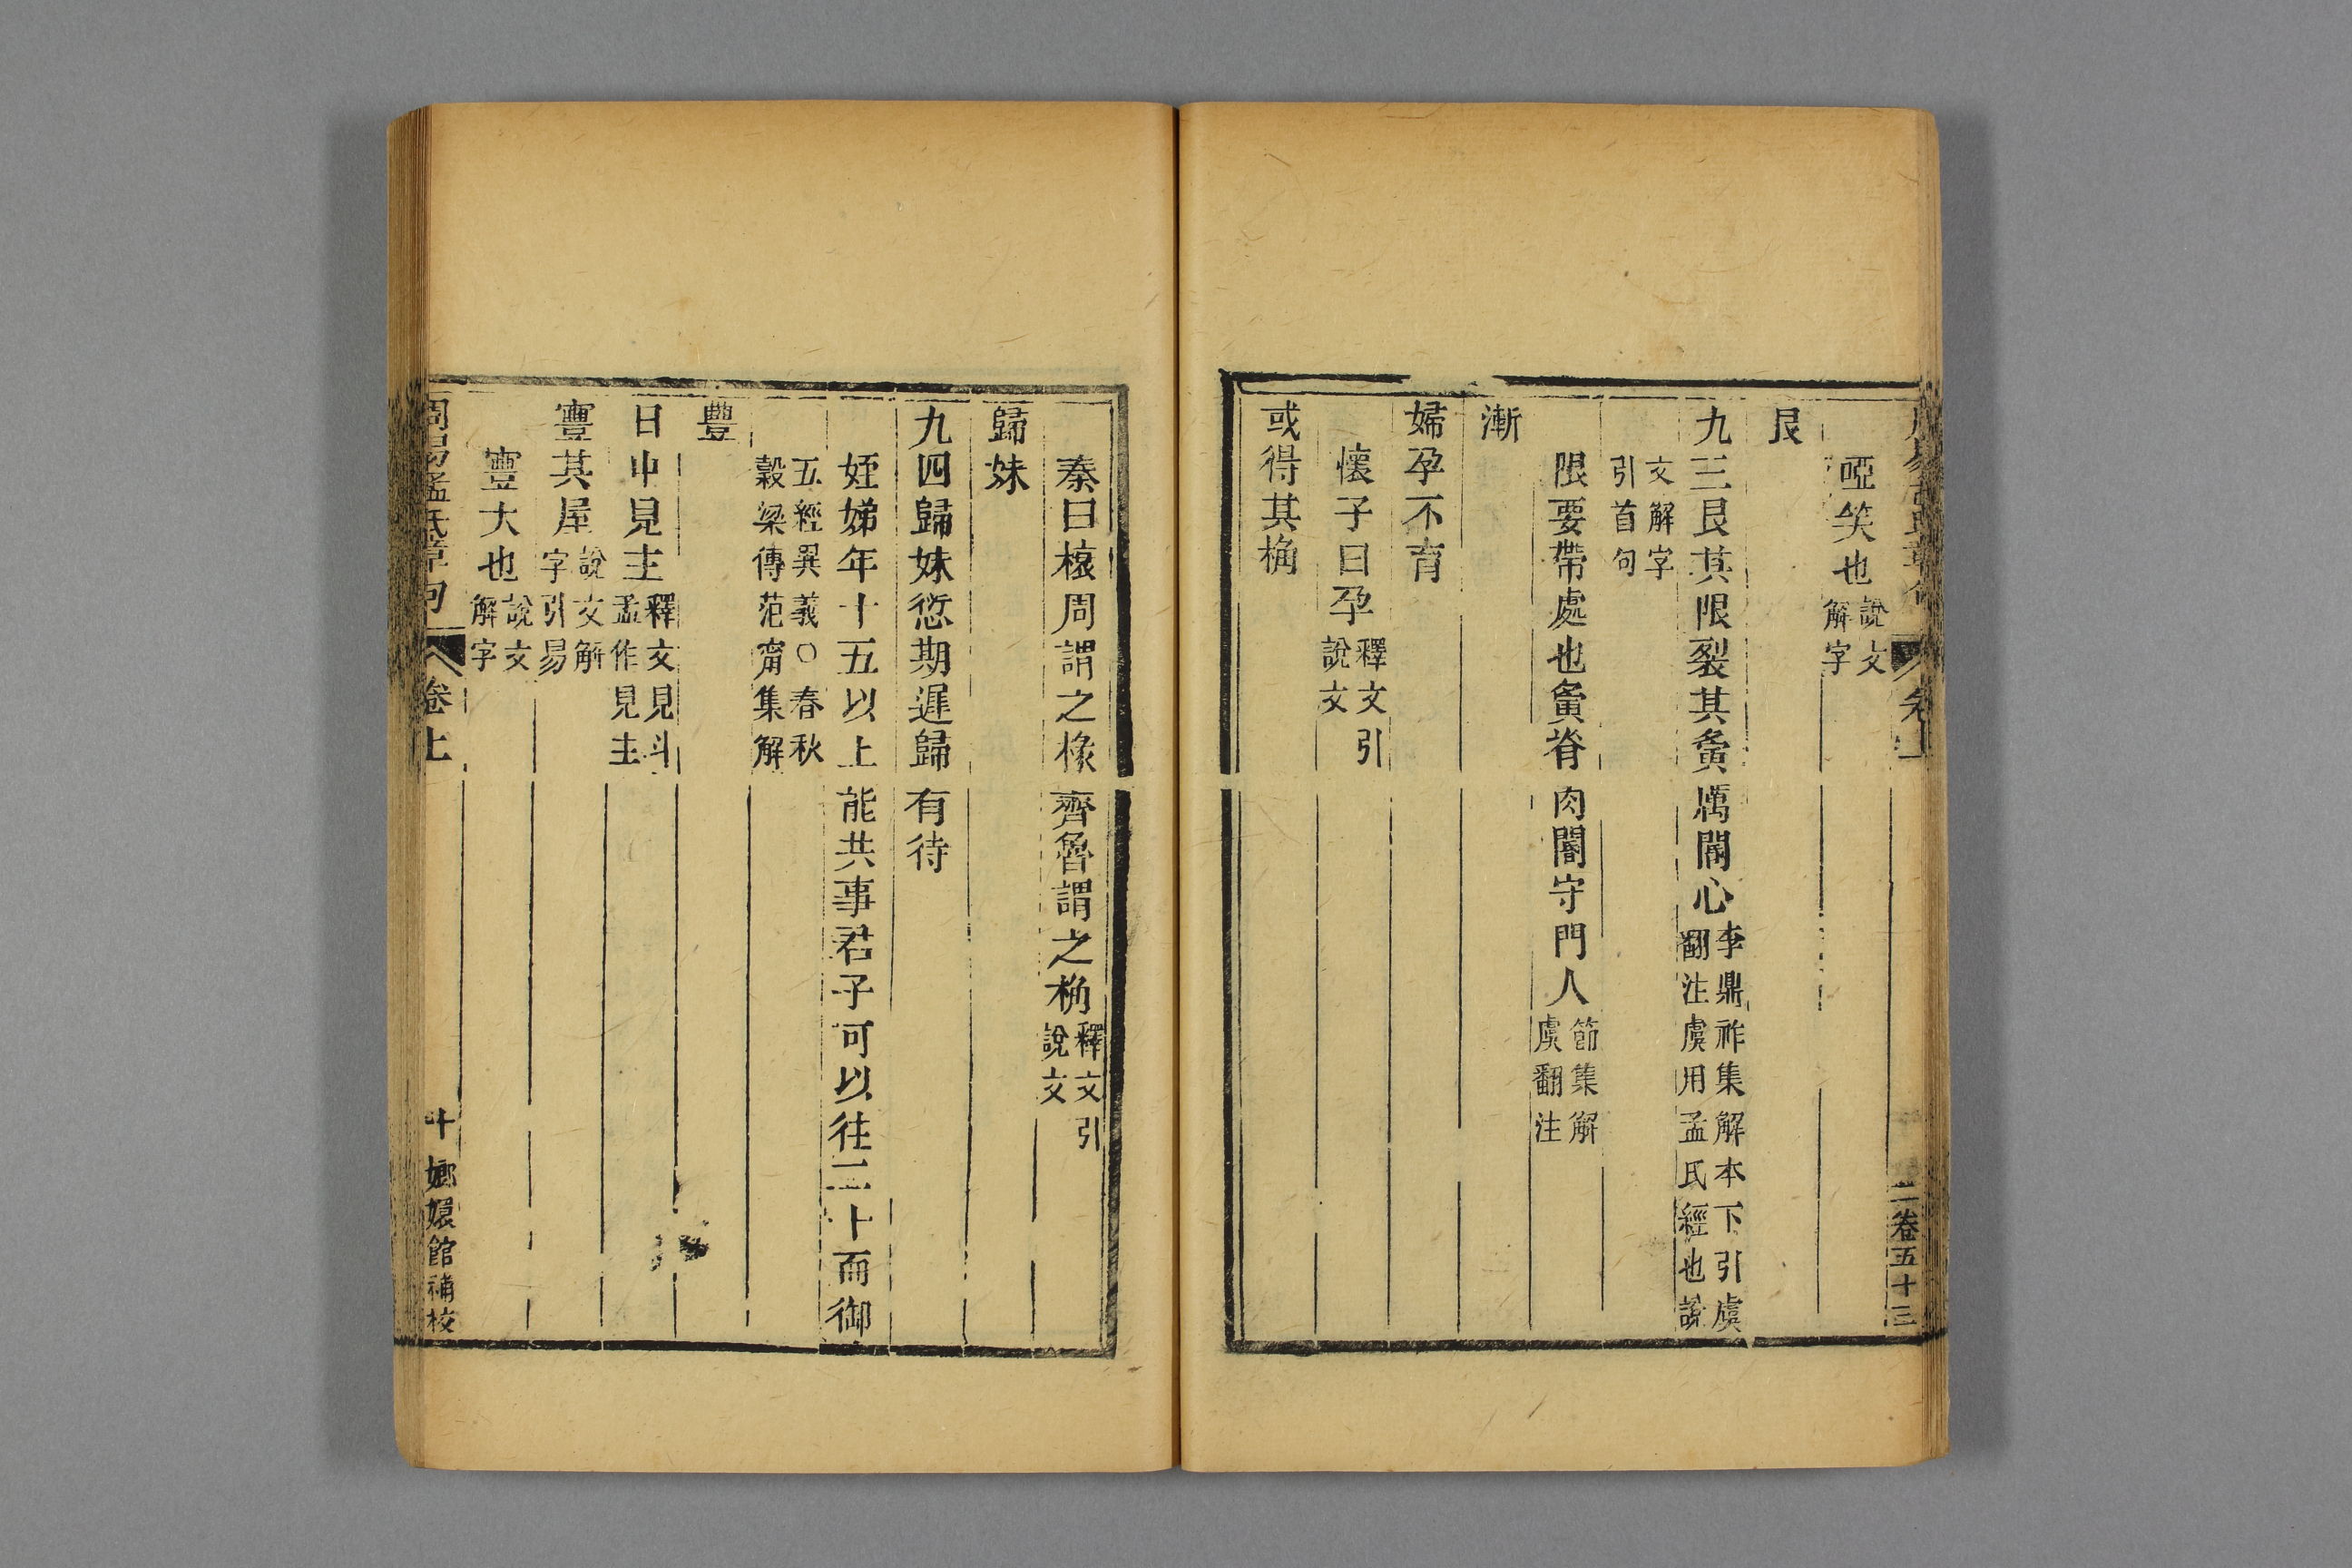 卷上 二卷五十三
啞笑也說文解字
艮
九三艮其限裂其夤厲閽心李鼎祚集解本下引虞翻注虞用孟氏經也說
文解字引首句
限要帶處也夤脊肉閽守門人節集解虞翻注
漸
婦孕不育
懷子曰孕釋文引說文
或得其桷
秦曰榱周謂之椽齊魯謂之桷釋文引說文
歸妹
九四歸妹愆期遲歸有待
姪娣年十五以上能共事君子可以往二十而御
五經異義○春秋穀梁傳范甯集解
豐
日中見主釋文見斗孟作見主
寷其屋說文解字引易
寷大也說文解字
周易孟氏章句 卷上 十 嫏嬛館補校